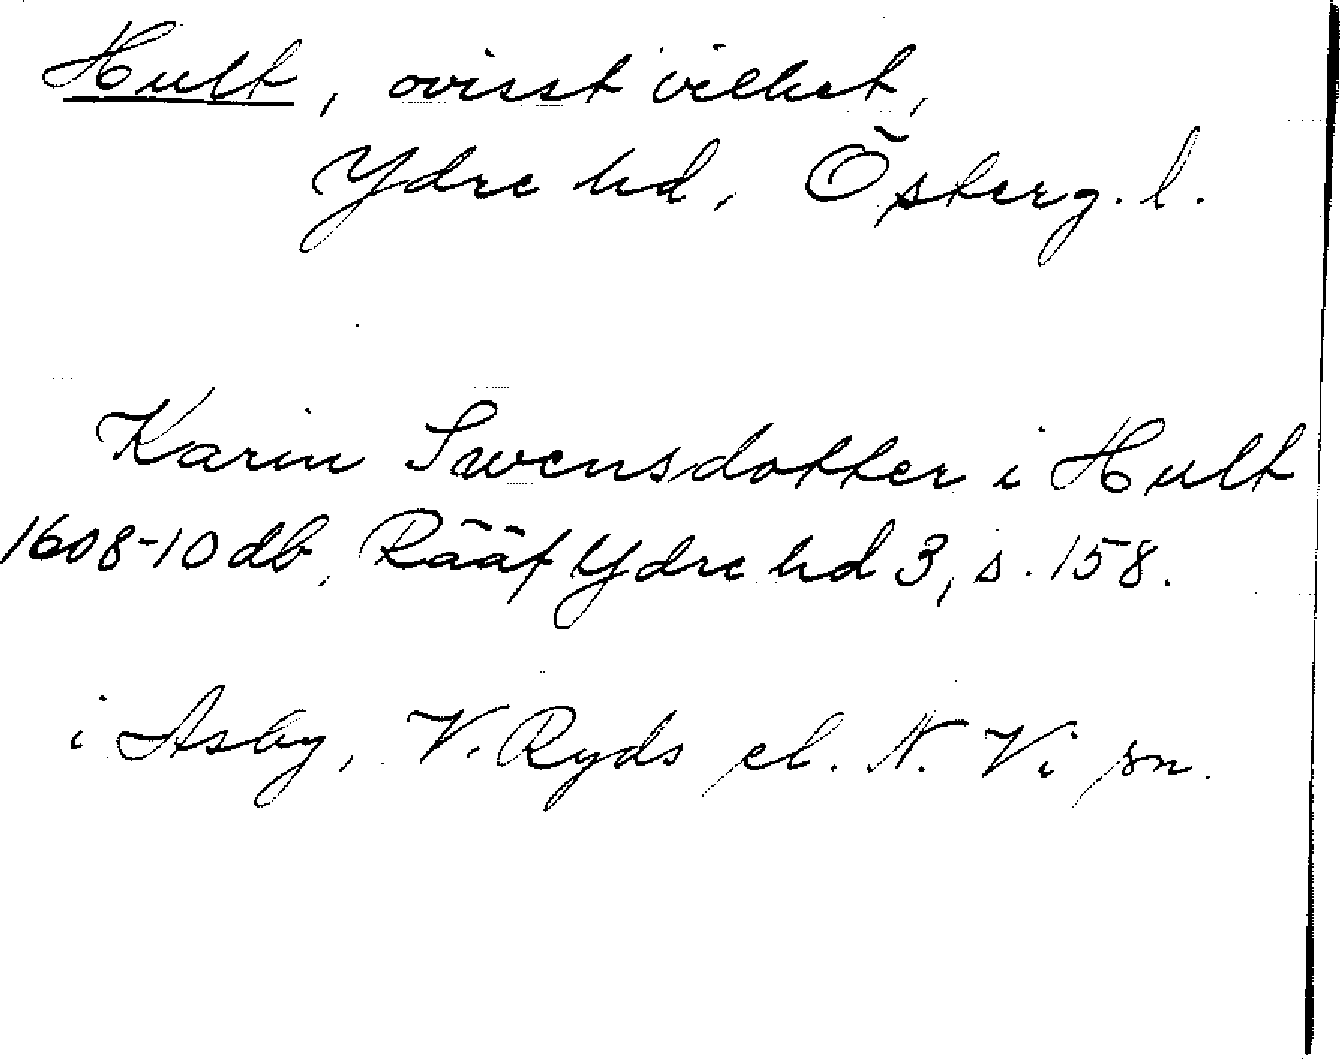 Hult, ovisst vilket,
Ydre hd, Österg. l.
Karin Swensdotter i Hult
1608-10 db, Rääf Ydre hd 3, s. 158.
i Asby, V. Ryds el. N. Vi sn.